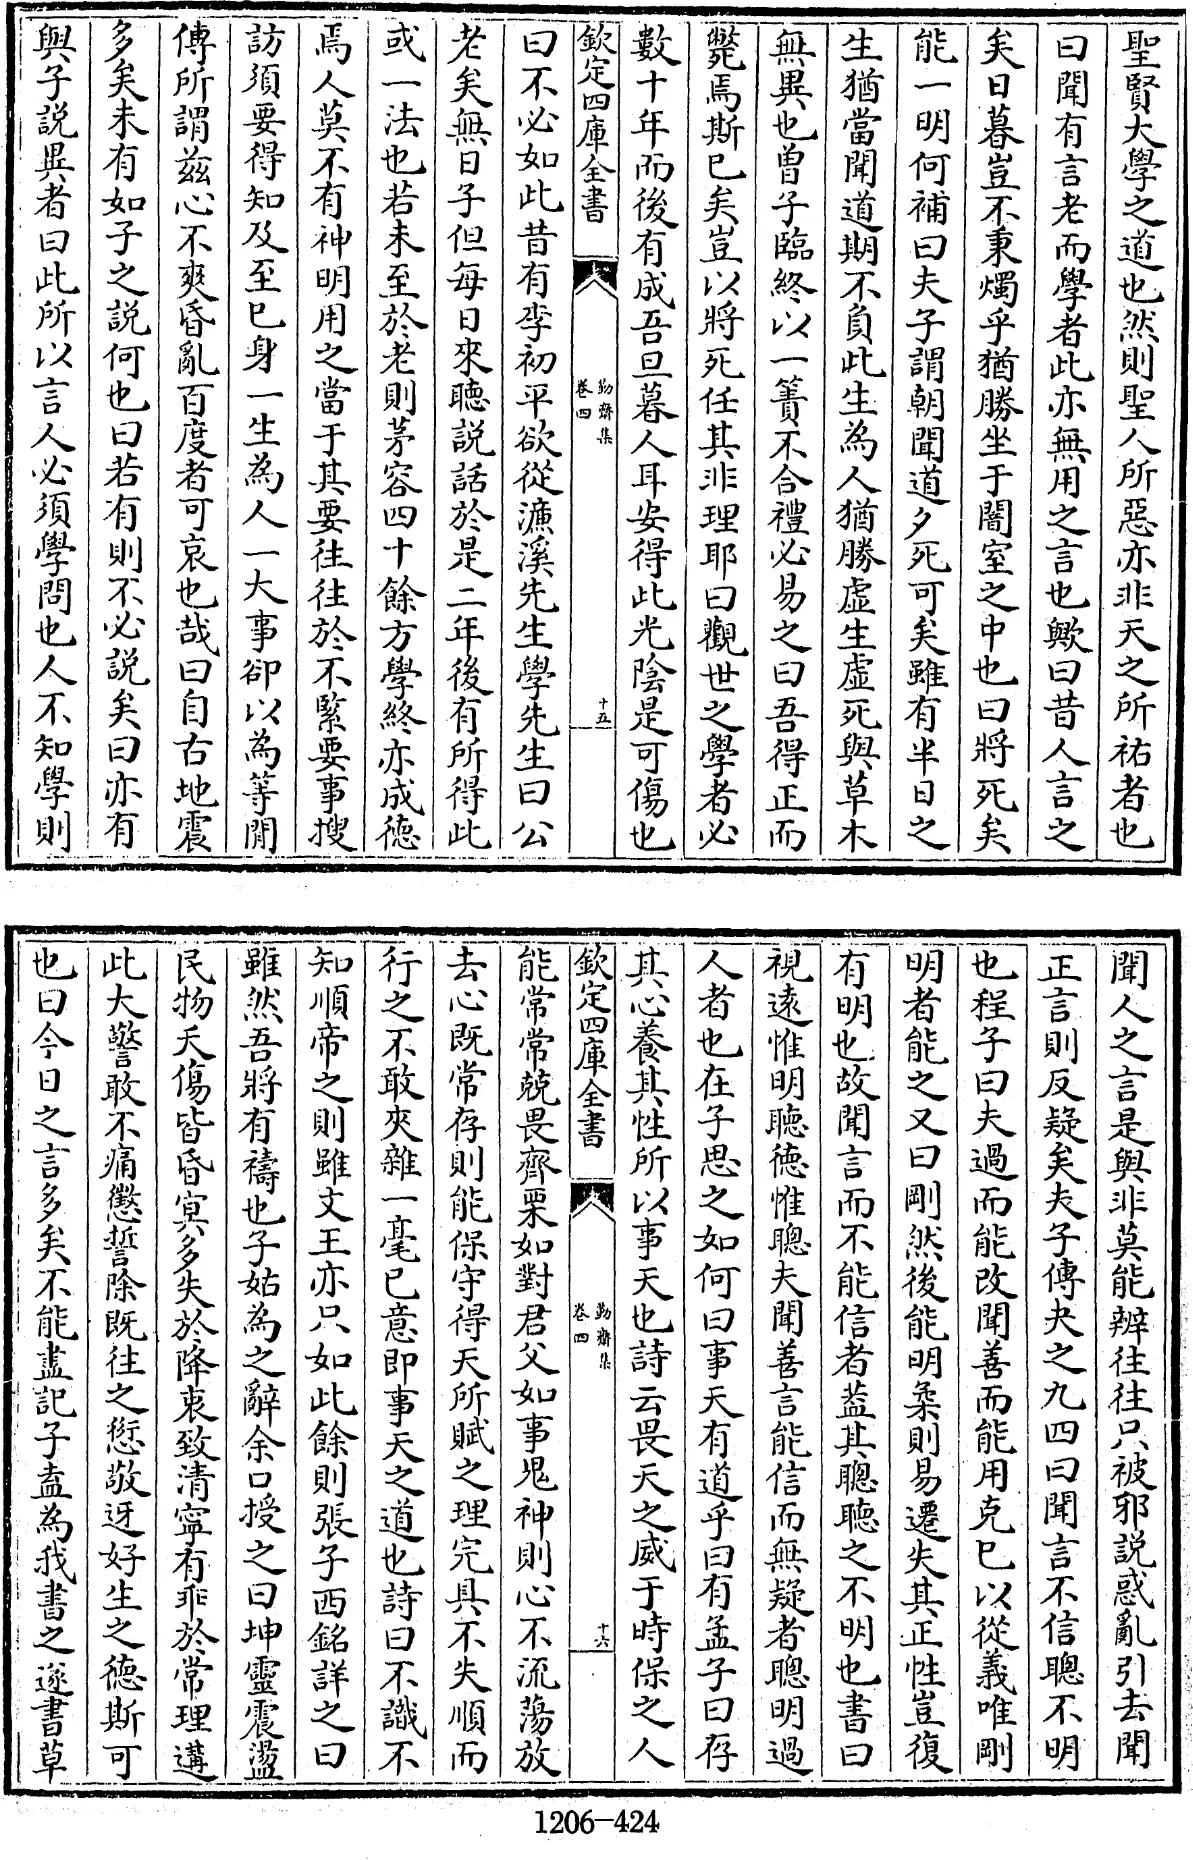 聖賢大學之道也然則聖人所惡亦非天之所祐者也
曰聞有言老而學者此亦無用之言也歟曰昔人言之
矣日暮豈不秉燭乎猶勝坐于闇室之中也曰將死矣
能一明何補曰夫子謂朝聞道夕死可矣雖有半日之
生猶當聞道期不負此生為人猶勝虛生虛死與草木
無異也曾子臨終以一簀不合禮必易之曰吾得正而
斃焉斯已矣豈以將死任其非理耶曰觀世之學者必
數十年而後有成吾旦暮人耳安得此光陰是可傷也
欽定四庫全書
勤齋集
卷四
十五
曰不必如此昔有李初平欲從濂溪先生學先生曰公
老矣無日子但每日來聽說話於是二年後有所得此
或一法也若未至於老則茅容四十餘方學終亦成德
焉人莫不有神明用之當于其要往往於不緊要事搜
訪須要得知及至已身一生為人一大事卻以為等閒
傳所謂兹心不爽昏亂百度者可哀也哉曰自古地震
多矣未有如子之說何也曰若有則不必說矣曰亦有
與子說異者曰此所以言人必須學問也人不知學則
聞人之言是與非莫能辨往往只被邪說惑亂引去聞
正言則反疑矣夫子傳夬之九四曰聞言不信聰不明
也程子曰夫過而能改聞善而能用克已以從義唯剛
明者能之又曰剛然後能明柔則易遷失其正性豈復
有明也故聞言而不能信者葢其聰聽之不明也書曰
視遠惟明聽德惟聰夫聞善言能信而無疑者聰明過
人者也在子思之如何曰事天有道乎曰有孟子曰存
其心養其性所以事天也詩云畏天之威于時保之人
欽定四庫全書
勤齋集
卷四
十六
能常常兢畏齊栗如對君父如事鬼神則心不流蕩放
去心既常存則能保守得天所賦之理完具不失順而
行之不敢夾雜一毫已意即事天之道也詩曰不識不
知順帝之則雖文王亦只如此餘則張子西銘詳之曰
雖然吾將有禱也子姑為之辭余口授之曰坤靈震盪
民物夭傷皆昏冥多失於降衷致清寧有乖於常理遘
此大警敢不痛懲誓除既往之愆敬迓好生之德斯可
也曰今日之言多矣不能盡記子盍為我書之遂書草
1206-424